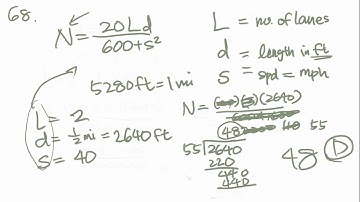 68.
N = 20Ld / 600+s²
L = no. of lanes
d = length in ft
s = spd = mph
5280ft = 1mi
L = 2
d = ½mi = 2640ft
s = 40
N = (2640)
48 55
55 2640
220
440
440
48 D